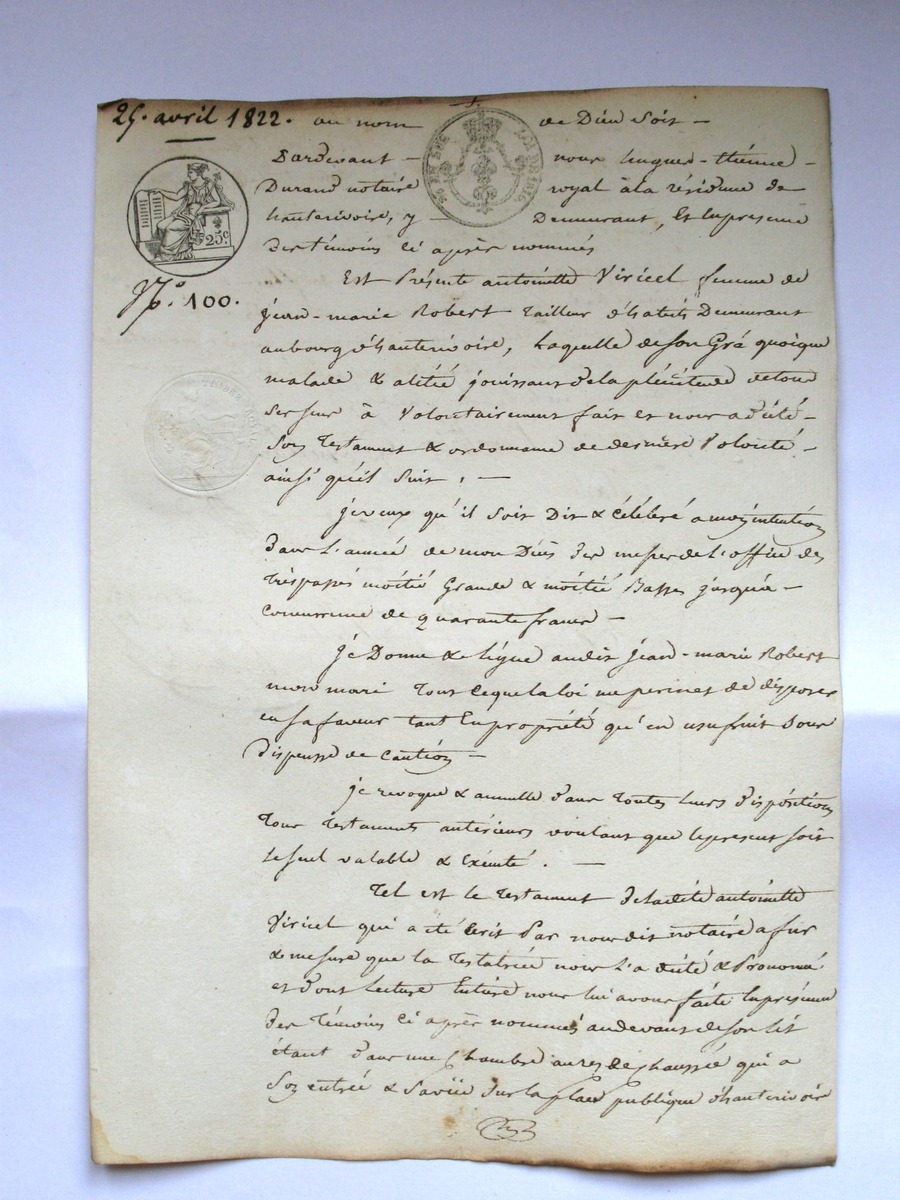 25. avril 1822. au nom de Dieu Soit -
Pardevant - nous hugues-Etienne -
Durand notaire royal à la résidence de
hauterivoire, y Demeurant, Et En présence
Des témoins Ci après nommés
25c
N.º 100.
Est Présente antoinette Viricel femme de
jean-marie Robert Tailleur d'habits Demeurant
au bourg d'hauterivoire, Laquelle de son Gré quoique
malade & alitée jouissant de la plénitude de tous
ses sens à Volontairement fait et nous a dicté -
Son Testament & ordonnance de dernière Volonté -
ainsi qu'il Suit. -
je veux qu'il soit Dit & Célébré a mon intention
dans L'année de mon Décès des messes de L'office des
Trépassés moitié Grandes & moitié Basses jusqu'à -
concurrence de quarante francs -
je Donne & Légue audit jean-marie Robert
mon mari Tout ce que la loi me permet de disposer
en sa faveur tant En propriété qu'en usufruit Sous
dispense de Caution -
je revoque & annulle dans Toutes leurs dispositions
Tous Testaments antérieurs voulant que le présent soit
le seul valable & Exécuté. -
Tel est le Testament de ladite antoinette
Viricel qui a été Ecrit Par nous dit notaire a fur
& mesure que la Testatrice nous L'a dicté & Prononcé
et dont Lecture Entière nous lui avons faite En présence
Des Témoins Ci après nommés au devant de son lit
étant dans une Chambre au res de chaussée qui a
Son entrée & Sa vüe Sur la place publique d'hauterivoire